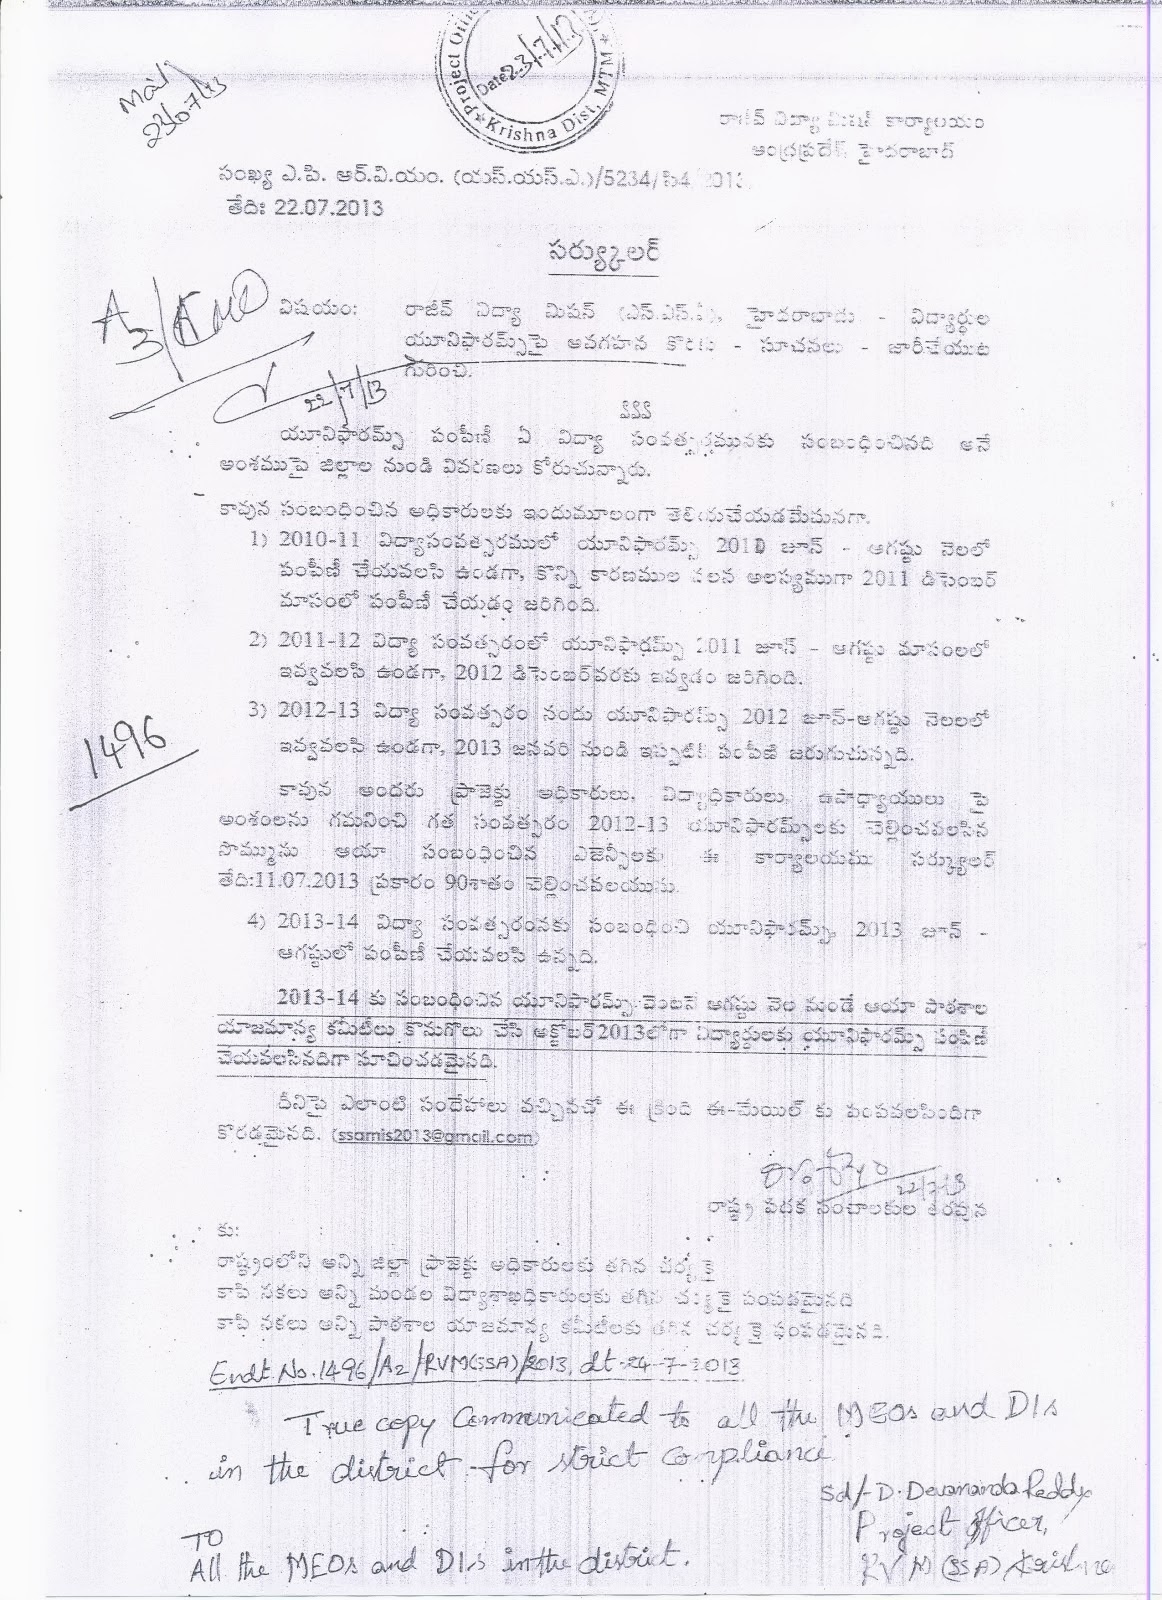 Project Offi
Date 23/7/13
Krishna Dist, MTM
23/07/13
రాజీవ్ విద్యా మిషన్ కార్యాలయం
ఆంధ్రప్రదేశ్, హైదరాబాద్
సంఖ్య ఎ.పి. ఆర్.వి.యం. (యస్.యస్.ఎ.)/5234/సి4/2013,
తేది: 22.07.2013
సర్క్యులర్
విషయం: రాజీవ్ విద్యా మిషన్ (ఎస్.ఎస్.ఏ), హైదరాబాదు - విద్యార్థుల
యూనిఫారమ్స్‌పై అవగాహన కొరకు - సూచనలు - జారీచేయుట
గురించి.
22/7/13
యూనిఫారమ్స్ పంపిణీ ఏ విద్యా సంవత్సరమునకు సంబంధించినది అనే
అంశముపై జిల్లాల నుండి వివరణలు కోరుచున్నారు.
కావున సంబంధించిన అధికారులకు ఇందుమూలంగా తెలియచేయడమేమనగా.
1) 2010-11 విద్యాసంవత్సరములో యూనిఫారమ్స్ 2010 జూన్ - ఆగష్టు నెలలో
పంపిణీ చేయవలసి ఉండగా, కొన్ని కారణముల వలన అలస్యముగా 2011 డిసెంబర్
మాసంలో పంపిణీ చేయడం జరిగింది.
2) 2011-12 విద్యా సంవత్సరంలో యూనిఫారమ్స్ 2011 జూన్ - ఆగష్టు మాసంలలో
ఇవ్వవలసి ఉండగా, 2012 డిసెంబర్‌వరకు ఇవ్వడం జరిగింది.
3) 2012-13 విద్యా సంవత్సరం నందు యూనిఫారమ్స్ 2012 జూన్-ఆగష్టు నెలలలో
ఇవ్వవలసి ఉండగా, 2013 జనవరి నుండి ఇప్పటికి పంపిణీ జరుగుచున్నది.
1496
కావున అందరు ప్రాజెక్టు అధికారులు, విద్యాధికారులు, ఉపాధ్యాయులు పై
అంశంలను గమనించి గత సంవత్సరం 2012-13 యూనిఫారమ్స్‌లకు చెల్లించవలసిన
సొమ్మును ఆయా సంబంధించిన ఎజెన్సీలకు ఈ కార్యాలయము సర్క్యులర్
తేది:11.07.2013 ప్రకారం 90శాతం చెల్లించవలయును.
4) 2013-14 విద్యా సంవత్సరంనకు సంబంధించి యూనిఫారమ్స్, 2013 జూన్ -
ఆగష్టులో పంపిణీ చేయవలసి ఉన్నది.
2013-14 కు సంబంధించిన యూనిఫారమ్స్ వెంటనే ఆగష్టు నెల నుండే ఆయా పాఠశాల
యాజమాన్య కమిటీలు కొనుగోలు చేసి అక్టోబర్ 2013లోగా విద్యార్థులకు యూనిఫారమ్స్ పంపిణీ
చేయవలసినదిగా సూచించడమైనది.
దీనిపై ఎలాంటి సందేహాలు వచ్చినచో ఈ క్రింది ఈ-మేయిల్ కు పంపవలసిందిగా
కొరడమైనది. (ssamis2013@gmail.com)
22/7/13
రాష్ట్ర పథక సంచాలకుల తరపున
కు:
రాష్ట్రంలోని అన్ని జిల్లా ప్రాజెక్టు అధికారులకు తగిన చర్యకై
కాపి నకలు అన్ని మండల విద్యాశాఖధికారులకు తగిన చర్యకై పంపడమైనది
కాపి నకలు అన్ని పాఠశాల యాజమాన్య కమిటీలకు తగిన చర్యకై పంపడమైనది.
Endt No.1496/A2/RVM(SSA)/2013, dt-24-7-2013
True copy Communicated to all the MEOs and DIs
in the district for strict compliance.
Sd/- D. Devananda Reddy
Project Officer,
RVM (SSA) Krishna
TO
All the MEOs and DIs in the district.